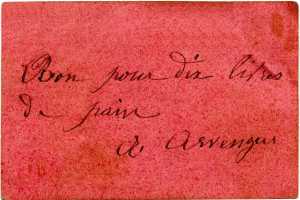 Bon pour dix livres
de pain
A. Arvengas